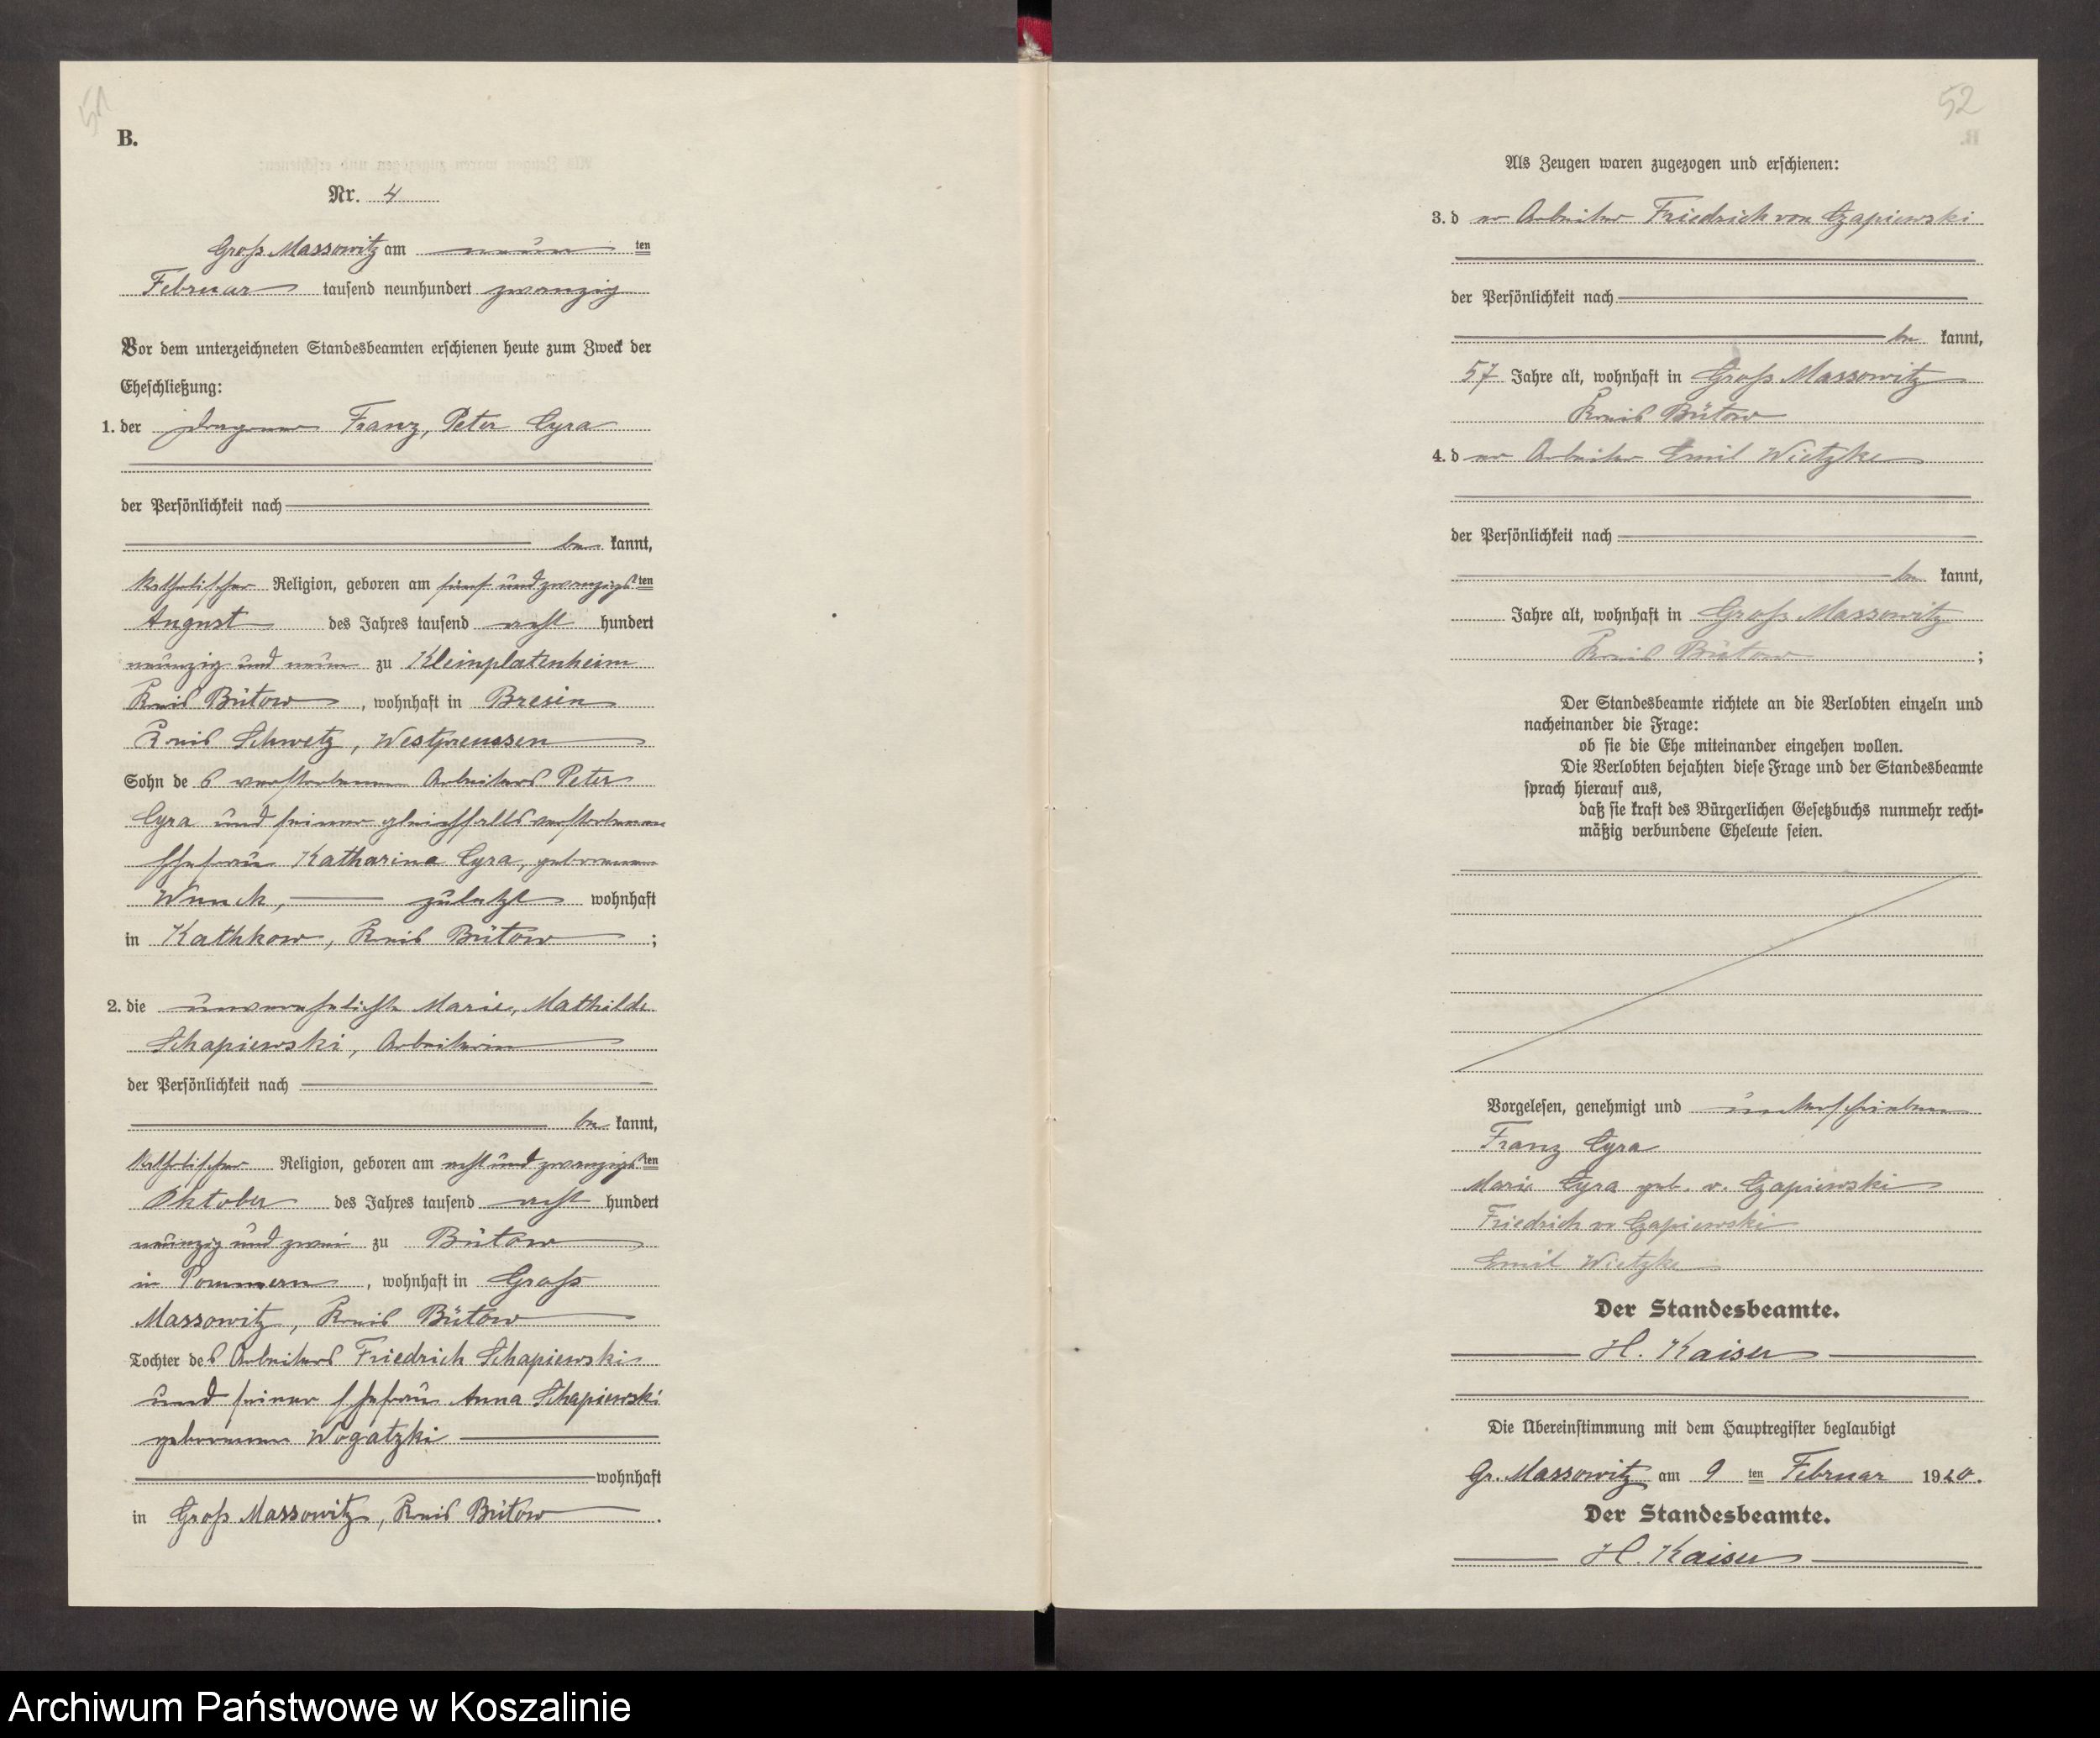 51
B.
Nr. 4
Groß Massowitz am neun ten
Februar tausend neunhundert zwanzig
Vor dem unterzeichneten Standesbeamten erschienen heute zum Zweck der
Eheschließung:
1. der Dragoner Franz, Peter Cyra
der Persönlichkeit nach
be kannt,
katholischer Religion, geboren am fünf und zwanzigsten
August des Jahres tausend acht hundert
neunzig und neun zu Kleinplatenheim
Kreis Bütow, wohnhaft in Bresin
Kreis Schwetz, Westpreussen
Sohn des verstorbenen Arbeiters Peter
Cyra und seiner gleichfalls verstorbenen
Ehefrau Katharina Cyra, geborenen
Wnuck, zuletzt wohnhaft
in Kathkow, Kreis Bütow;
2. die unverehelichte Marie, Mathilde
Schapiewski, Arbeiterin
der Persönlichkeit nach
be kannt,
katholischer Religion, geboren am acht und zwanzigsten
Oktober des Jahres tausend acht hundert
neunzig und zwei zu Bütow
in Pommern, wohnhaft in Groß
Massowitz, Kreis Bütow
Tochter des Arbeiters Friedrich Schapiewski
und seiner Ehefrau Anna Schapiewski
geborenen Wogatzki
wohnhaft
in Groß Massowitz, Kreis Bütow.
52
Als Zeugen waren zugezogen und erschienen:
3. d er Arbeiter Friedrich von Czapiewski
der Persönlichkeit nach
be kannt,
57 Jahre alt, wohnhaft in Groß Massowitz
Kreis Bütow
4. d er Arbeiter Emil Wietzke
der Persönlichkeit nach
be kannt,
Jahre alt, wohnhaft in Groß Massowitz
Kreis Bütow;
Der Standesbeamte richtete an die Verlobten einzeln und
nacheinander die Frage:
ob sie die Ehe miteinander eingehen wollen.
Die Verlobten bejahten diese Frage und der Standesbeamte
sprach hierauf aus,
daß sie kraft des Bürgerlichen Gesetzbuchs nunmehr recht-
mäßig verbundene Eheleute seien.
Vorgelesen, genehmigt und unterschrieben
Franz Cyra
Marie Cyra geb. v. Czapiewski
Friedrich v. Czapiewski
Emil Wietzke
Der Standesbeamte.
H. Kaiser
Die Übereinstimmung mit dem Hauptregister beglaubigt
Gr. Massowitz am 9 ten Februar 1920.
Der Standesbeamte.
H. Kaiser
Archiwum Państwowe w Koszalinie